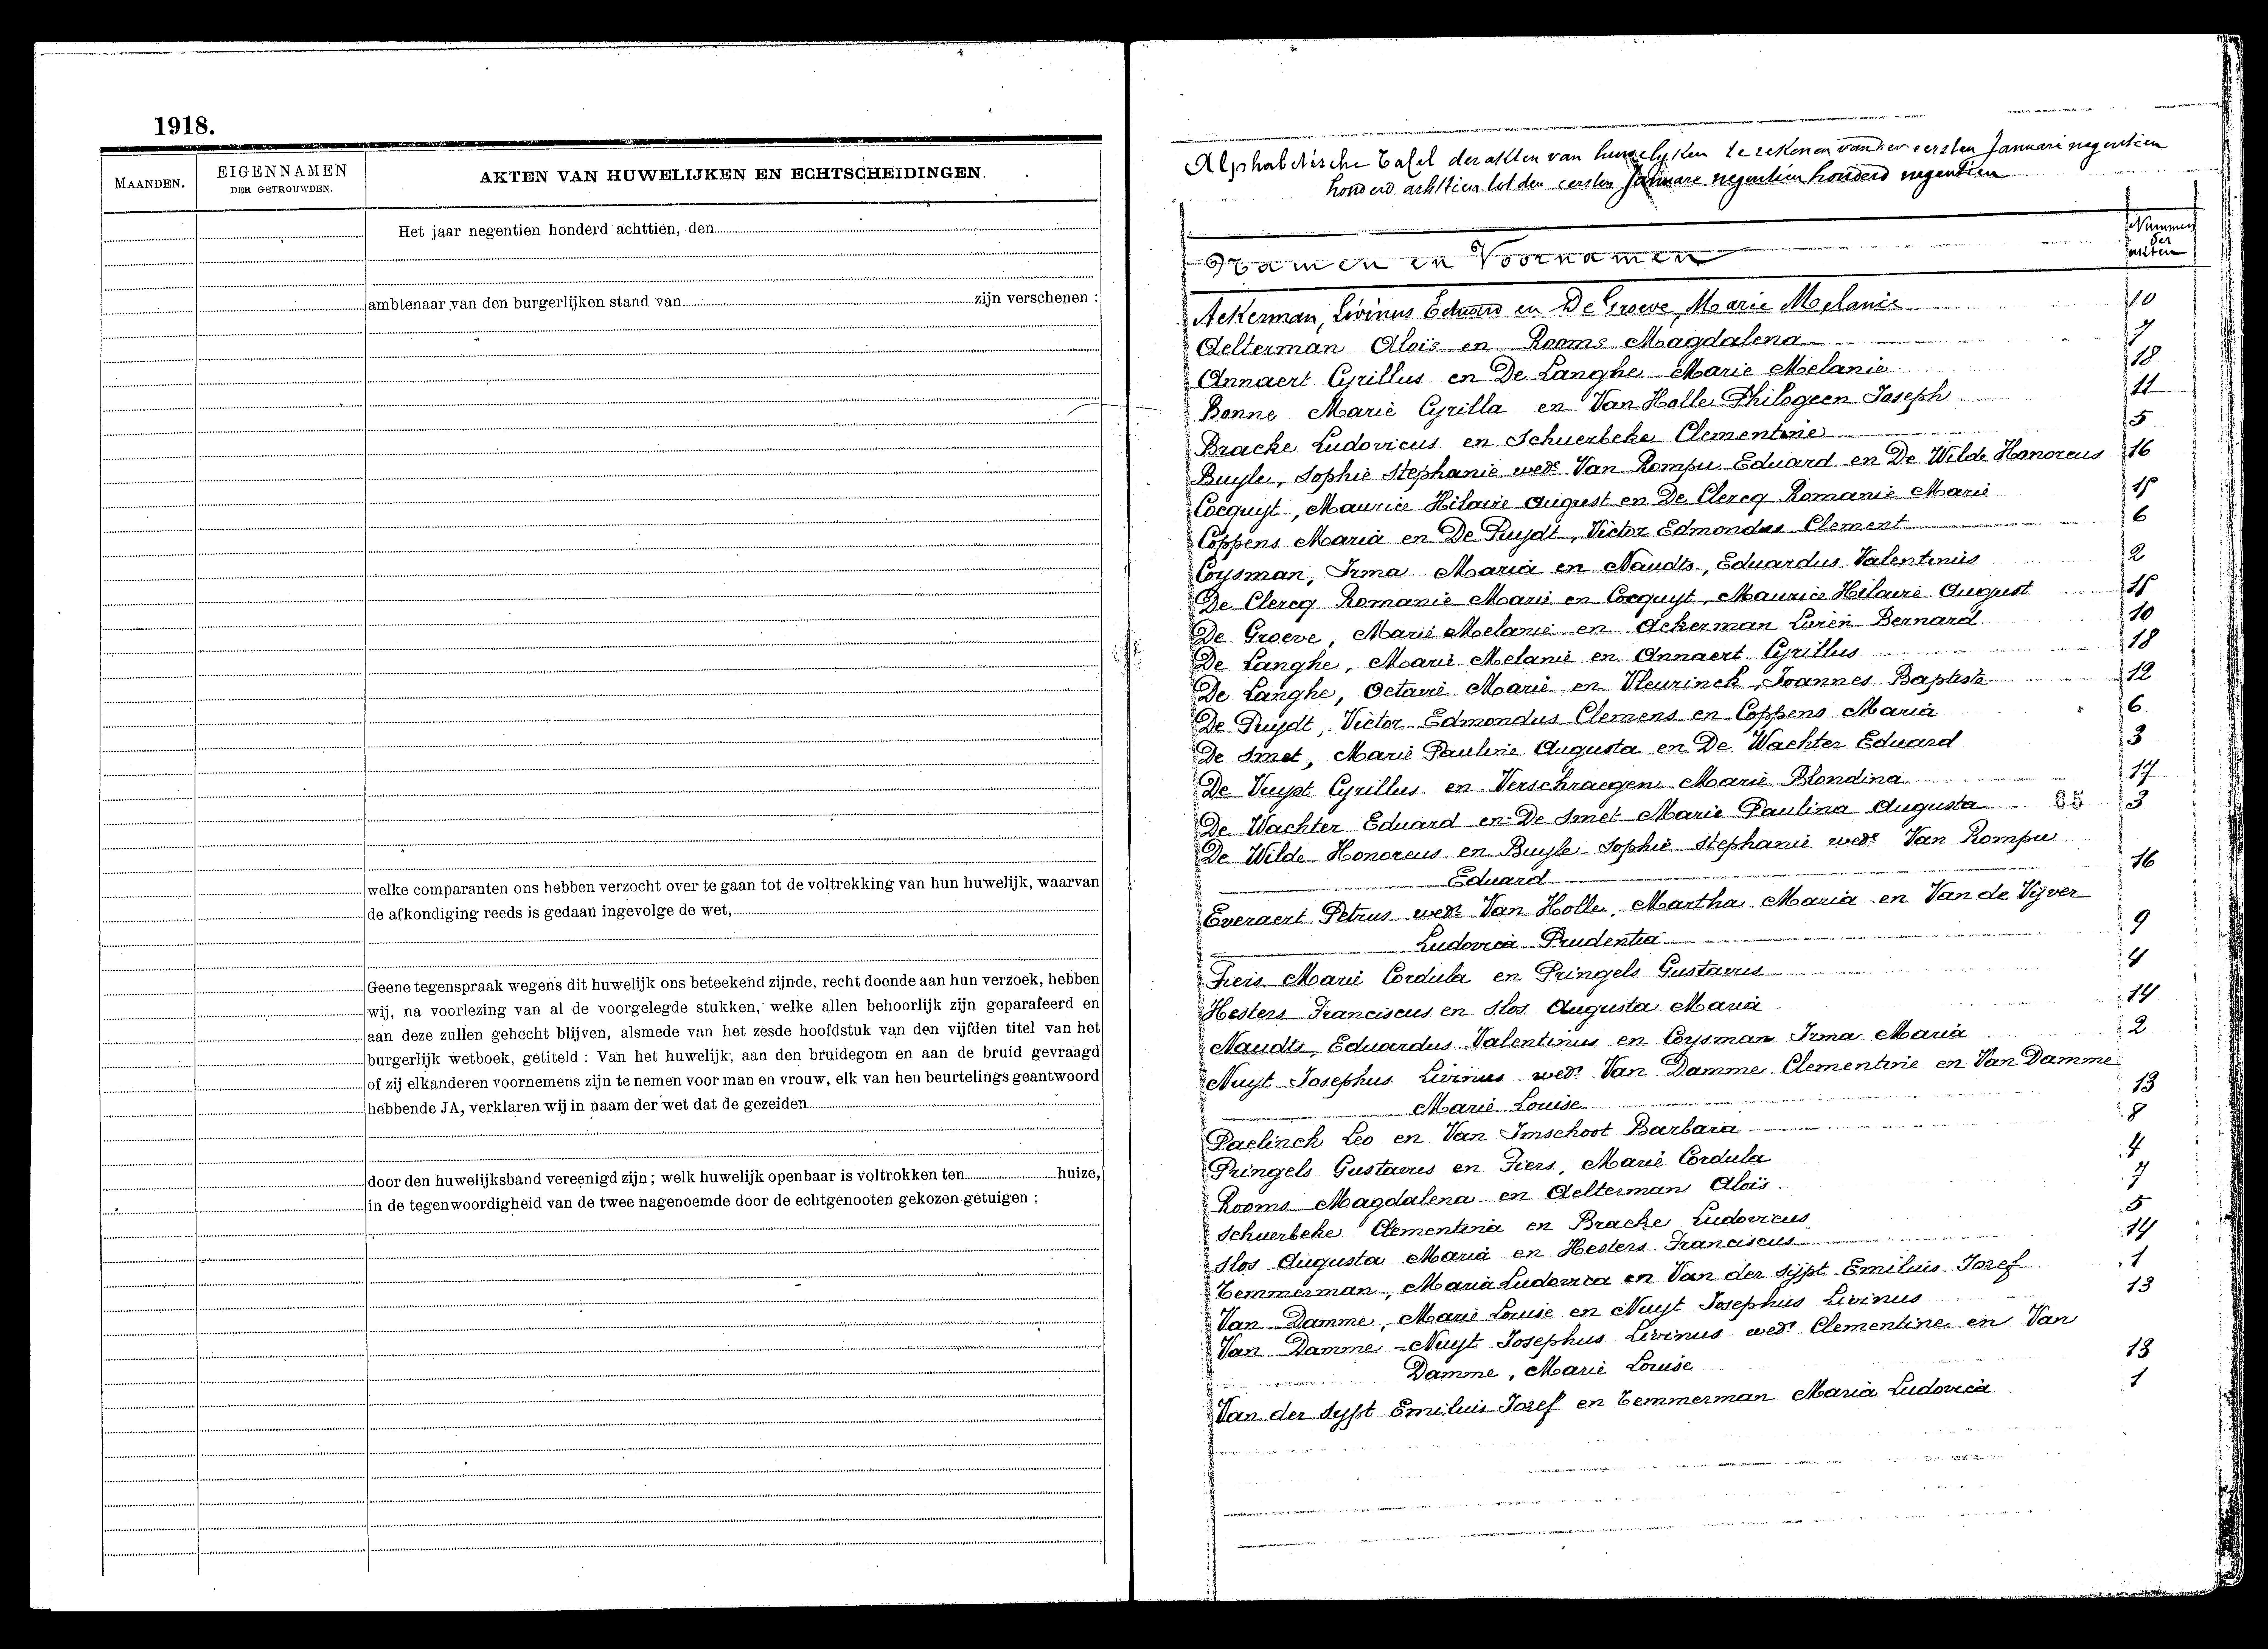 1918.
MAANDEN.
EIGENNAMEN
DER GETROUWDEN.
AKTEN VAN HUWELIJKEN EN ECHTSCHEIDINGEN.
Het jaar negentien honderd achttien, den
ambtenaar van den burgerlijken stand van zijn verschenen :
welke comparanten ons hebben verzocht over te gaan tot de voltrekking van hun huwelijk, waarvan
de afkondiging reeds is gedaan ingevolge de wet,
Geene tegenspraak wegens dit huwelijk ons beteekend zijnde, recht doende aan hun verzoek, hebben
wij, na voorlezing van al de voorgelegde stukken, welke allen behoorlijk zijn geparafeerd en
aan deze zullen gehecht blijven, alsmede van het zesde hoofdstuk van den vijfden titel van het
burgerlijk wetboek, getiteld : Van het huwelijk, aan den bruidegom en aan de bruid gevraagd
of zij elkanderen voornemens zijn te nemen voor man en vrouw, elk van hen beurtelings geantwoord
hebbende JA, verklaren wij in naam der wet dat de gezeiden
door den huwelijksband vereenigd zijn ; welk huwelijk openbaar is voltrokken ten huize,
in de tegenwoordigheid van de twee nagenoemde door de echtgenooten gekozen getuigen :
Alphabetische tafel der akten van huwelijken te rekenen van den eersten Januari negentien
honderd achttien tot den eersten Januari negentien honderd negentien
Namen en Voornamen
Nummers
der
akten
Ackerman, Livinus Eduard en De Groeve, Marie Melanie 10
Aelterman Aloïs en Rooms Magdalena 7
Annaert Cyrillus en De Langhe Marie Melanie 18
Bonne Marie Cyrilla en Van Holle Philogeen Joseph 11
Bracke Ludovicus en Schuerbeke Clementine 5
Buyle, Sophie Stephanie wede Van Rompu Eduard en De Wilde Honoreus 16
Cocquyt, Maurice Hilaire August en De Clercq Romanie Marie 15
Coppens Maria en De Puydt, Victor Edmondus Clement 6
Coysman, Irma Maria en Naudts, Eduardus Valentinus 2
De Clercq Romanie Marie en Cocquyt, Maurice Hilaire August 15
De Groeve, Marie Melanie en Ackerman Livien Bernard 10
De Langhe, Marie Melanie en Annaert Cyrillus 18
De Langhe, Octavie Marie en Vleurinck, Joannes Baptiste 12
De Puydt, Victor Edmondus Clemens en Coppens Maria 6
De Smet, Marie Pauline Augusta en De Wachter Eduard 3
De Vuyst Cyrillus en Verschraegen Marie Blondina 17
De Wachter Eduard en De Smet Marie Paulina Augusta 65 3
De Wilde Honoreus en Buyle Sophie Stephanie wede Van Rompu
Eduard 16
Everaert Petrus wedr Van Holle, Martha Maria en Van de Vijver
Ludovica Prudentia 9
Fiers Marie Cordula en Pringels Gustavus 4
Hesters Franciscus en Slos Augusta Maria 14
Naudts, Eduardus Valentinus en Coysman Irma Maria 2
Nuyt Josephus Livinus wedr Van Damme Clementine en Van Damme
Marie Louise 13
Paelinck Leo en Van Imschoot Barbara 8
Pringels Gustavus en Fiers, Marie Cordula 4
Rooms Magdalena en Aelterman Aloïs 7
Schuerbeke Clementina en Bracke Ludovicus 5
Slos Augusta Maria en Hesters Franciscus 14
Temmerman, Maria Ludovica en Van der Sypt Emilius Jozef 1
Van Damme, Marie Louise en Nuyt Josephus Livinus 13
Van Damme - Nuyt Josephus Livinus wedr Clementine en Van
Damme, Marie Louise 13
Van der Sypt Emilius Jozef en Temmerman Maria Ludovica 1